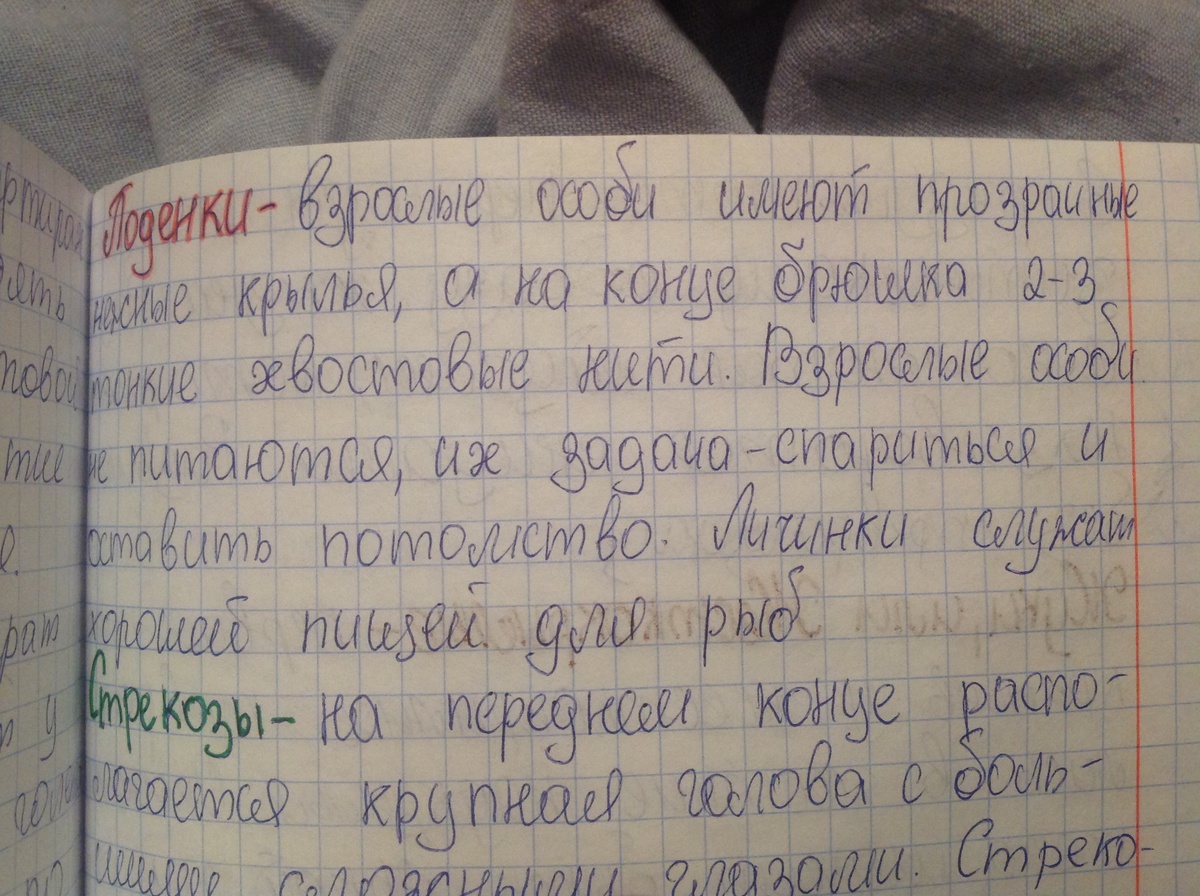 Поденки- взрослые особи имеют прозрачные
нежные крылья, а на конце брюшка 2-3
тонкие хвостовые нити. Взрослые особи
не питаются, их задача-спариться и
оставить потомство. Личинки служат
хорошей пищей для рыб
Стрекозы- на переднем конце распо-
лагается крупная голова с боль-
шими глазами. Стреко-